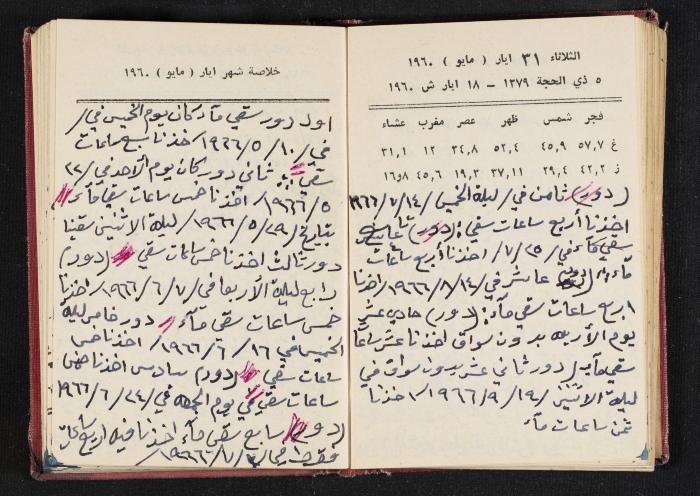 الثلاثاء ٣١ ايار ( مايو ) ١٩٦٠
٥ ذي الحجة ١٣٧٩ – ١٨ ايار ش ١٩٦٠
فجر شمس ظهر عصر مغرب عشاء
غ ٥٧,٧ ٤٥,٩ ٥٢,٤ ٣٤,٨ ١٢ ٣١,١
ز ٤٢,٢ ٢٩,٤ ٣٧,١١ ١٩,٣ ٤٥,٦ ١٦و٨
( دور ) ثامن في / ليلة الخميس / ١٤ / ٧ / ١٩٦٦
اخذنا أربع ساعات سقي ( دور ) تاسع
سقي مآء في / ٢٥ / ٧ / اخذنا أربع ساعات
مآء ( دور ) عاشر في / ١٤ / ٨ / ١٩٦٦ / اخذنا
اربع ساعات سقي مآء ( دور ) حادي عشر
يوم الأربعه بدون سواق اخذنا عشر ساعات
سقي مآء ( دور ثاني عشر بدون سواق في
ليلة الاثنين / ١٩ / ٩ / ١٩٦٦ / اخذنا
ثمن ساعات مآء
خلاصة شهر ايار ( مايو ) ١٩٦٠
اول دور سقي مآء كان يوم الخميس في /
في / ١٠ / ٥ / ١٩٦٦ / خذنا سبع ساعات
سقي ثاني دور كان يوم الأحد في / ٢٢
/ ٥ / ١٩٦٦ / اخذنا خمس ساعات سقي مآء
بتاريخ ( ٢٩ / ٥ / ١٩٦٦ / ليلة الاثنين سقينا
دور ثالث اخذنا خمس ساعات سقي ( دور )
رابع ليلة الأربعا في / ٧ / ٦ / ١٩٦٦ / اخذنا
خمس ساعات سقي مآء دور خامس ليلة
الخميس في ١٦ / ٦ / ١٩٦٦ / اخذنا خمس
ساعات سقي ( دور ) سادس اخذنا خمس
ساعات سقي في يوم الجمعه في / ٢٤ / ٦ / ١٩٦٦
( دور ) سابع سقي مآء اخذنا فيه اربع ساعات
فقط في / ٧ / ١٩٦٦ /